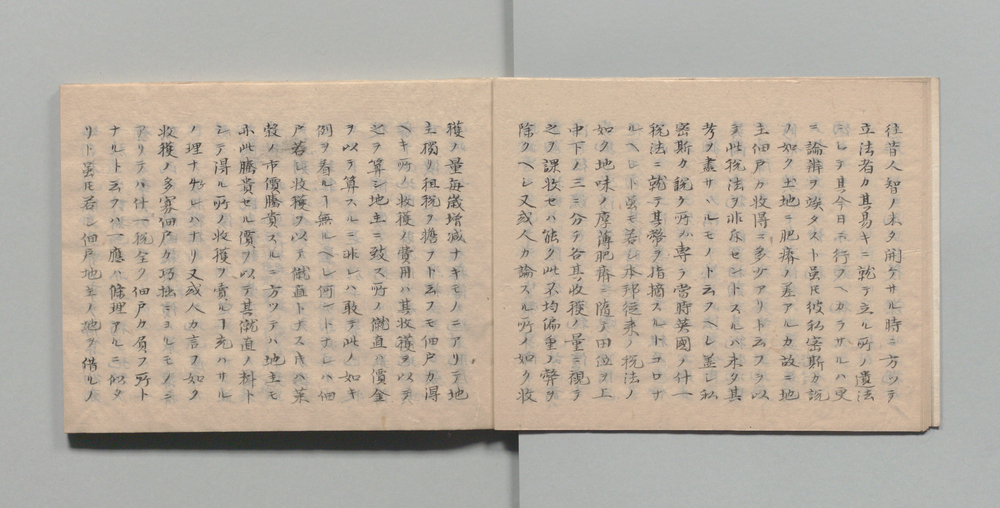 往昔人智ノ未タ開ケサル時ニ方ツテ
立法者カ其易キニ就テ立ル所ノ遺法
ニシテ其今日ニ行フヘカラサルハ更
ニ論辨ヲ竢タスト虽𪜈彼私密斯カ説
ノ如ク土地ニ肥瘠ノ差アルカ故ニ地
主佃戸カ收得ニ多少アリト云フヲ以
テ此税法ヲ非斥セントスルハ未タ其
考ヲ盡サヽルモノト云フヘシ蓋シ私
密斯カ説ク所ハ専ラ當時英國ノ什一
税法ニ就テ其弊ヲ指摘スルトコロナ
ルヘシト虽モ若シ本邦従来ノ税法ノ
如ク地味ノ厚薄肥瘠ニ隨テ田位ヲ上
中下ノ三ニ分テ各其收穫ノ量ニ視テ
之ヲ課收セハ能ク此不均偏重ノ弊ヲ
除クヘシ又或人カ論スル所ノ如ク收
穫ノ量毎歳増減ナキモノニアリテ地
主獨リ租税ヲ擔フト云フモ佃戸カ得
ヘキ所ノ收穫ノ費用ハ其收穫ヲ以テ
之ヲ算シ地主ニ致ス所ノ僦直ハ價金
ヲ以テ算スルニ非レハ敢テ此ノ如キ
例ヲ看ルヿ無ルヘシ何ントナレハ佃
戸若シ收穫ヲ以テ僦直トナス𪜈ハ菜
穀ノ市價騰貴スルニ方ツテハ地主モ
亦此騰貴セル價ヲ以テ其僦直ノ料ト
シテ得ル所ノ收穫ヲ賣ルヿ克ハサル
ノ理ナケレハナリ又或人カ言フ如ク
收穫ノ多寡佃戸カ巧拙ニヨルモノニ
アリテハ什一税全ク佃戸カ負フ所ト
ナルト云フハ一應ハ條理アルニ似タ
リト虽𪜈若シ佃戸地主ノ地ヲ借ルノ